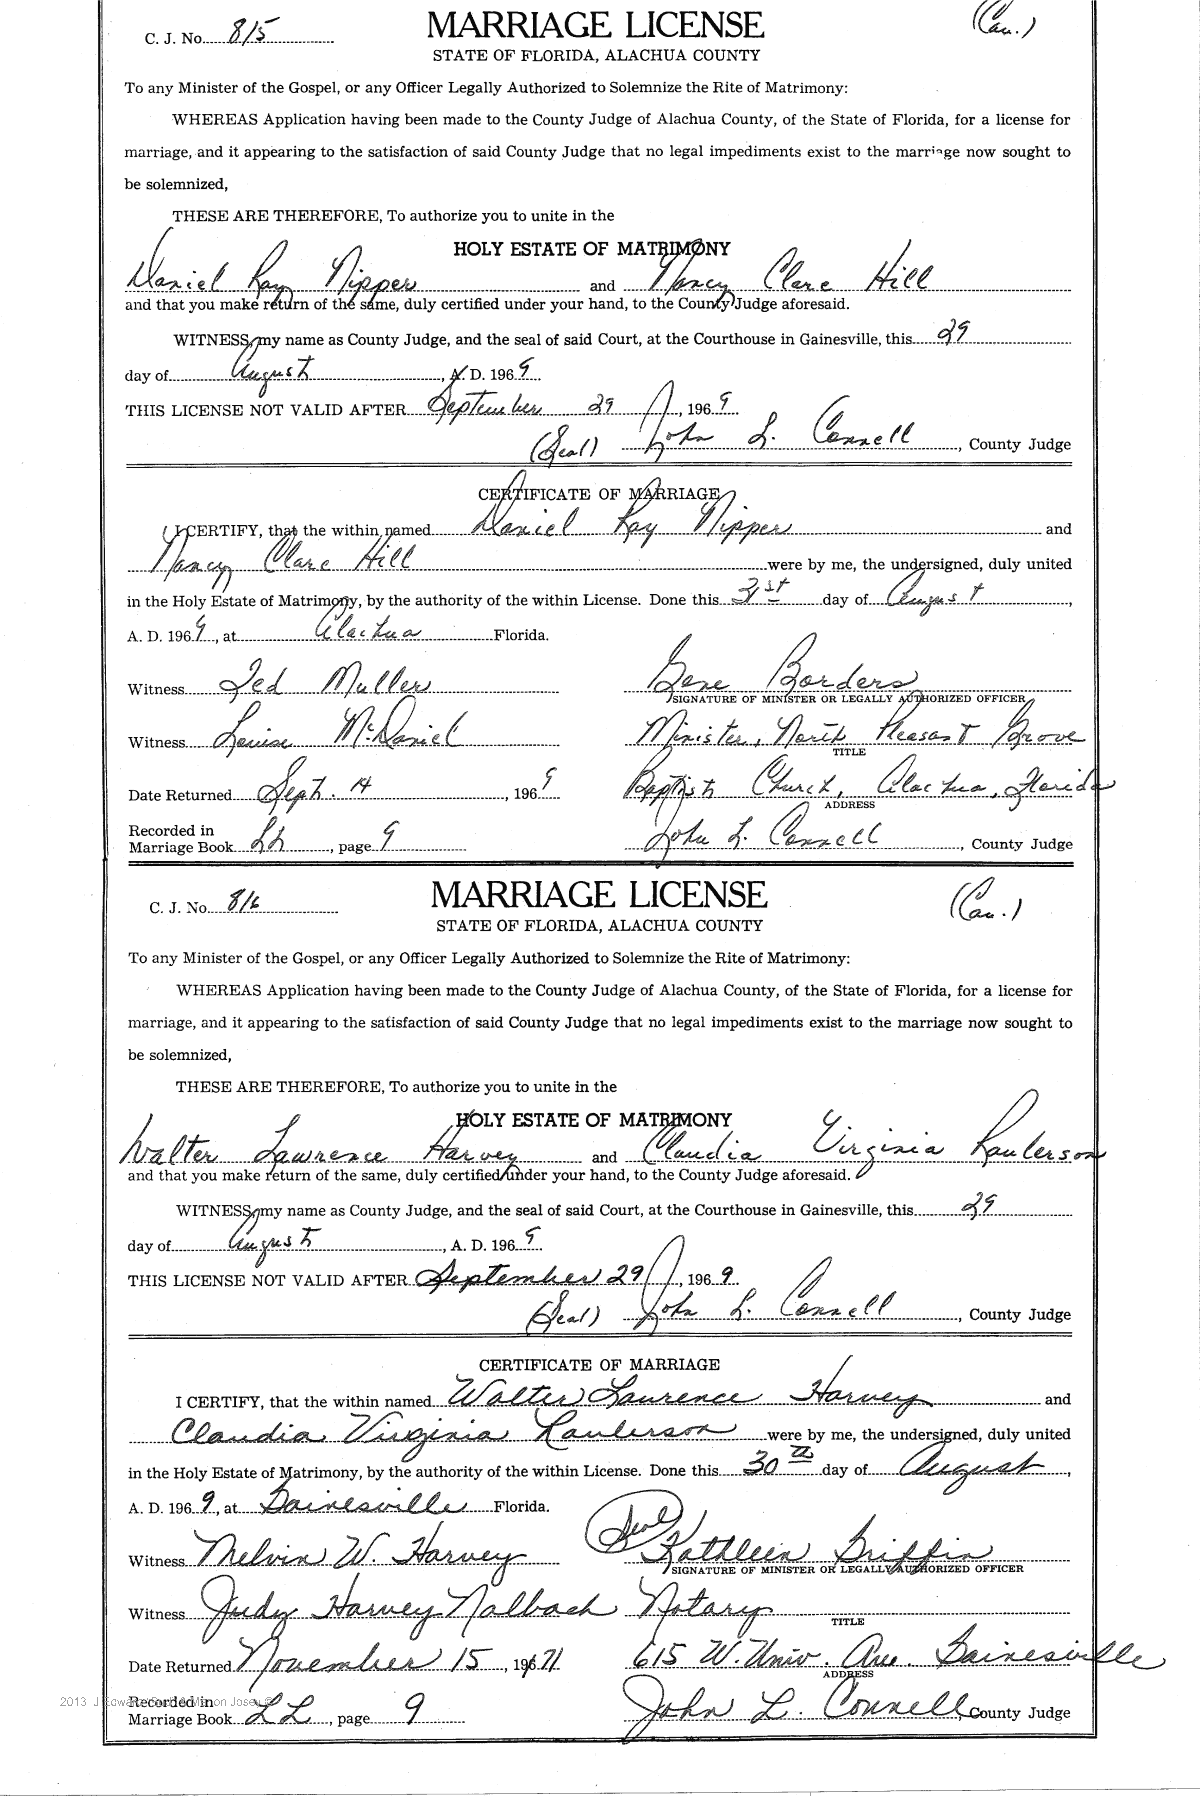 C. J. No. 815
MARRIAGE LICENSE
(Cau.)
STATE OF FLORIDA, ALACHUA COUNTY
To any Minister of the Gospel, or any Officer Legally Authorized to Solemnize the Rite of Matrimony:
WHEREAS Application having been made to the County Judge of Alachua County, of the State of Florida, for a license for
marriage, and it appearing to the satisfaction of said County Judge that no legal impediments exist to the marriage now sought to
be solemnized,
THESE ARE THEREFORE, To authorize you to unite in the
HOLY ESTATE OF MATRIMONY
Daniel Ray Nipper and Nancy Clare Hill
and that you make return of the same, duly certified under your hand, to the County Judge aforesaid.
WITNESS, my name as County Judge, and the seal of said Court, at the Courthouse in Gainesville, this 29
day of August, A. D. 1969
THIS LICENSE NOT VALID AFTER September 29, 1969.
(Seal) John L. Connell, County Judge
CERTIFICATE OF MARRIAGE
I CERTIFY, that the within named Daniel Ray Nipper and
Nancy Clare Hill were by me, the undersigned, duly united
in the Holy Estate of Matrimony, by the authority of the within License. Done this 31st day of August,
A. D. 1969, at Alachua Florida.
Witness Ted Muller Gene Borders
SIGNATURE OF MINISTER OR LEGALLY AUTHORIZED OFFICER
Witness Louise McDaniel Minister, North Pleasant Grove
TITLE
Date Returned Sept. 14, 1969 Baptist Church, Alachua, Florida
ADDRESS
Recorded in
Marriage Book LL, page 9 John L. Connell, County Judge
C. J. No. 816
MARRIAGE LICENSE
(Cau.)
STATE OF FLORIDA, ALACHUA COUNTY
To any Minister of the Gospel, or any Officer Legally Authorized to Solemnize the Rite of Matrimony:
WHEREAS Application having been made to the County Judge of Alachua County, of the State of Florida, for a license for
marriage, and it appearing to the satisfaction of said County Judge that no legal impediments exist to the marriage now sought to
be solemnized,
THESE ARE THEREFORE, To authorize you to unite in the
HOLY ESTATE OF MATRIMONY
Walter Lawrence Harvey and Claudia Virginia Raulerson
and that you make return of the same, duly certified under your hand, to the County Judge aforesaid.
WITNESS, my name as County Judge, and the seal of said Court, at the Courthouse in Gainesville, this 29
day of August, A. D. 1969.
THIS LICENSE NOT VALID AFTER September 29, 1969.
(Seal) John L. Connell, County Judge
CERTIFICATE OF MARRIAGE
I CERTIFY, that the within named Walter Laurence Harvey and
Claudia Virginia Raulerson were by me, the undersigned, duly united
in the Holy Estate of Matrimony, by the authority of the within License. Done this 30th day of August,
A. D. 1969, at Gainesville Florida.
Seal
Witness Melvin W. Harvey Kathleen Griffin
SIGNATURE OF MINISTER OR LEGALLY AUTHORIZED OFFICER
Witness Judy Harvey Nalbach Notary
TITLE
Date Returned November 15, 1971 615 W. Univ. Ave. Gainesville
ADDRESS
2013 J
Recorded in
Marriage Book LL, page 9 John L. Connell, County Judge